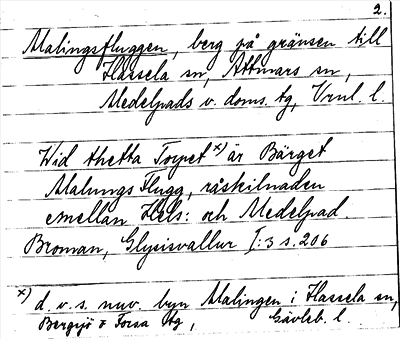 2.
Malingsfluggen, berg på gränsen till
Hassela sn, Attmars sn,
Medelpads v. doms. tg, Vrnl. l.
Wid thetta Torpet x) är Bärget
Malungs Flugg, råskilnaden
emellan Hels: och Medelpad.
Broman, Glysisvallur I:3 s. 206
x) d. v. s. nuv. byn Malingen i Hassela sn,
Bergsjö o Forsa tg, Gävleb. l.